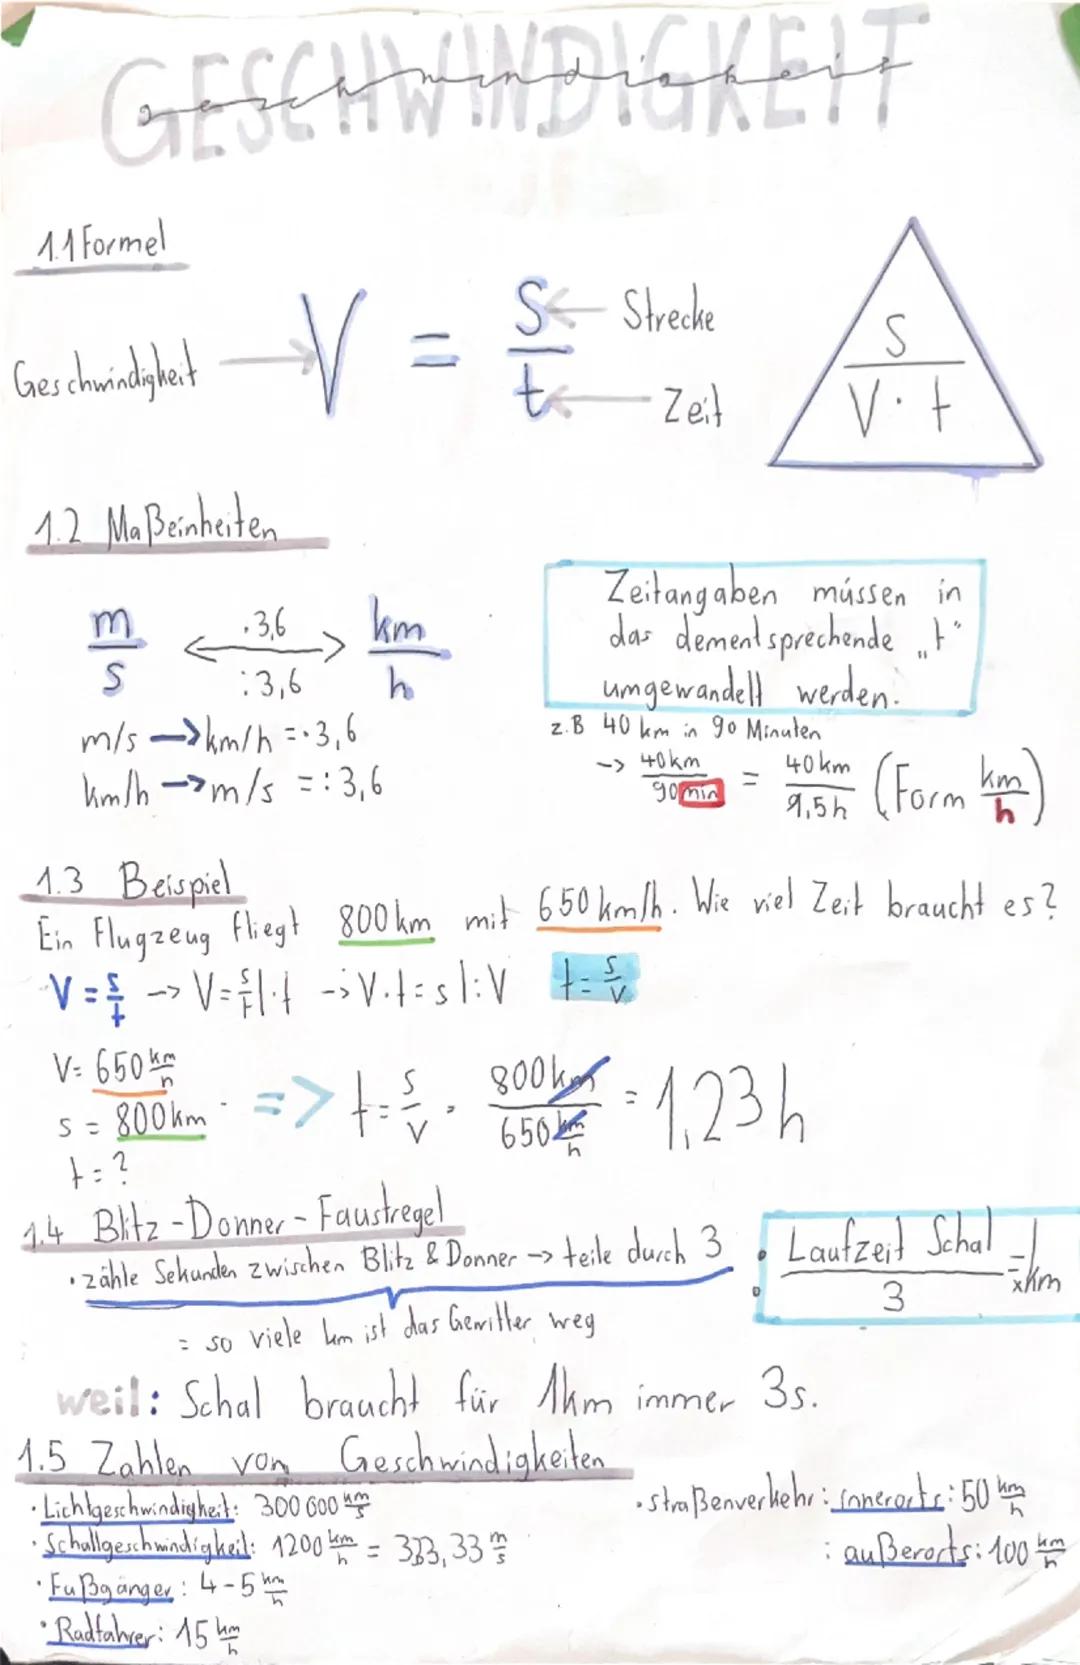 GESCHWINDIGKEIT
Geschwindigkeit
1.1 Formel
Geschwindigkeit → V = s/t ← Strecke
← Zeit
s
V · t
1.2 Maßeinheiten
m/s ← ·3,6 → km/h
:3,6
m/s → km/h = ·3,6
km/h → m/s = :3,6
Zeitangaben müssen in
das dementsprechende „t“
umgewandelt werden.
z.B 40 km in 90 Minuten
→ 40km/90min = 40km/1,5h (Form km/h)
1.3 Beispiel
Ein Flugzeug fliegt 800km mit 650km/h. Wie viel Zeit braucht es?
V = s/t → V = s/t |·t → V·t = s |:V t = s/V
V = 650 km/h
s = 800km
t = ?
=> t = s/V , 800km / 650 km/h = 1,23h
1.4 Blitz-Donner-Faustregel
· zähle Sekunden zwischen Blitz & Donner → teile durch 3
= so viele km ist das Gewitter weg
Laufzeit Schal
3
= xkm
weil: Schal braucht für 1km immer 3s.
1.5 Zahlen von Geschwindigkeiten
· Lichtgeschwindigkeit: 300 000 km/s
· Schallgeschwindigkeit: 1200 km/h = 333,33 m/s
· Fußgänger: 4-5 km/h
· Radfahrer: 15 km/h
· straßenverkehr: innerorts: 50 km/h
: außerorts: 100 km/h